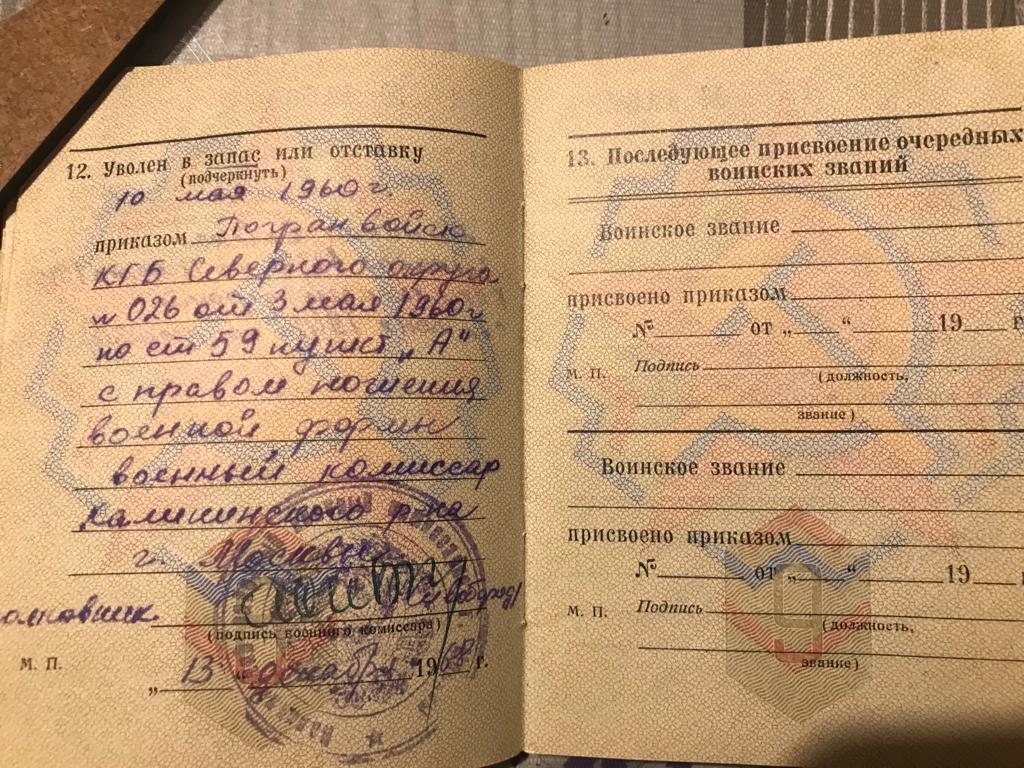 12. Уволен в запас или отставку
(подчеркнуть)
10 мая 1960 г.
приказом Погран войск
КГБ Северного округа
№ 026 от 3 мая 1960 г
по ст 59 пункт „А“
с правом ношения
военной формы
военный комиссар
Калининского р-на
г. Москвы
(подпись военного комиссара)
М. П.
„ 13 “ декабря 1968 г.
13. Последующее присвоение очередных
воинских званий
Воинское звание
присвоено приказом
№ от „ “ 19 г.
М. П. Подпись
(должность,
звание)
Воинское звание
присвоено приказом
№ от „ “ 19 г.
М. П. Подпись
(должность,
звание)